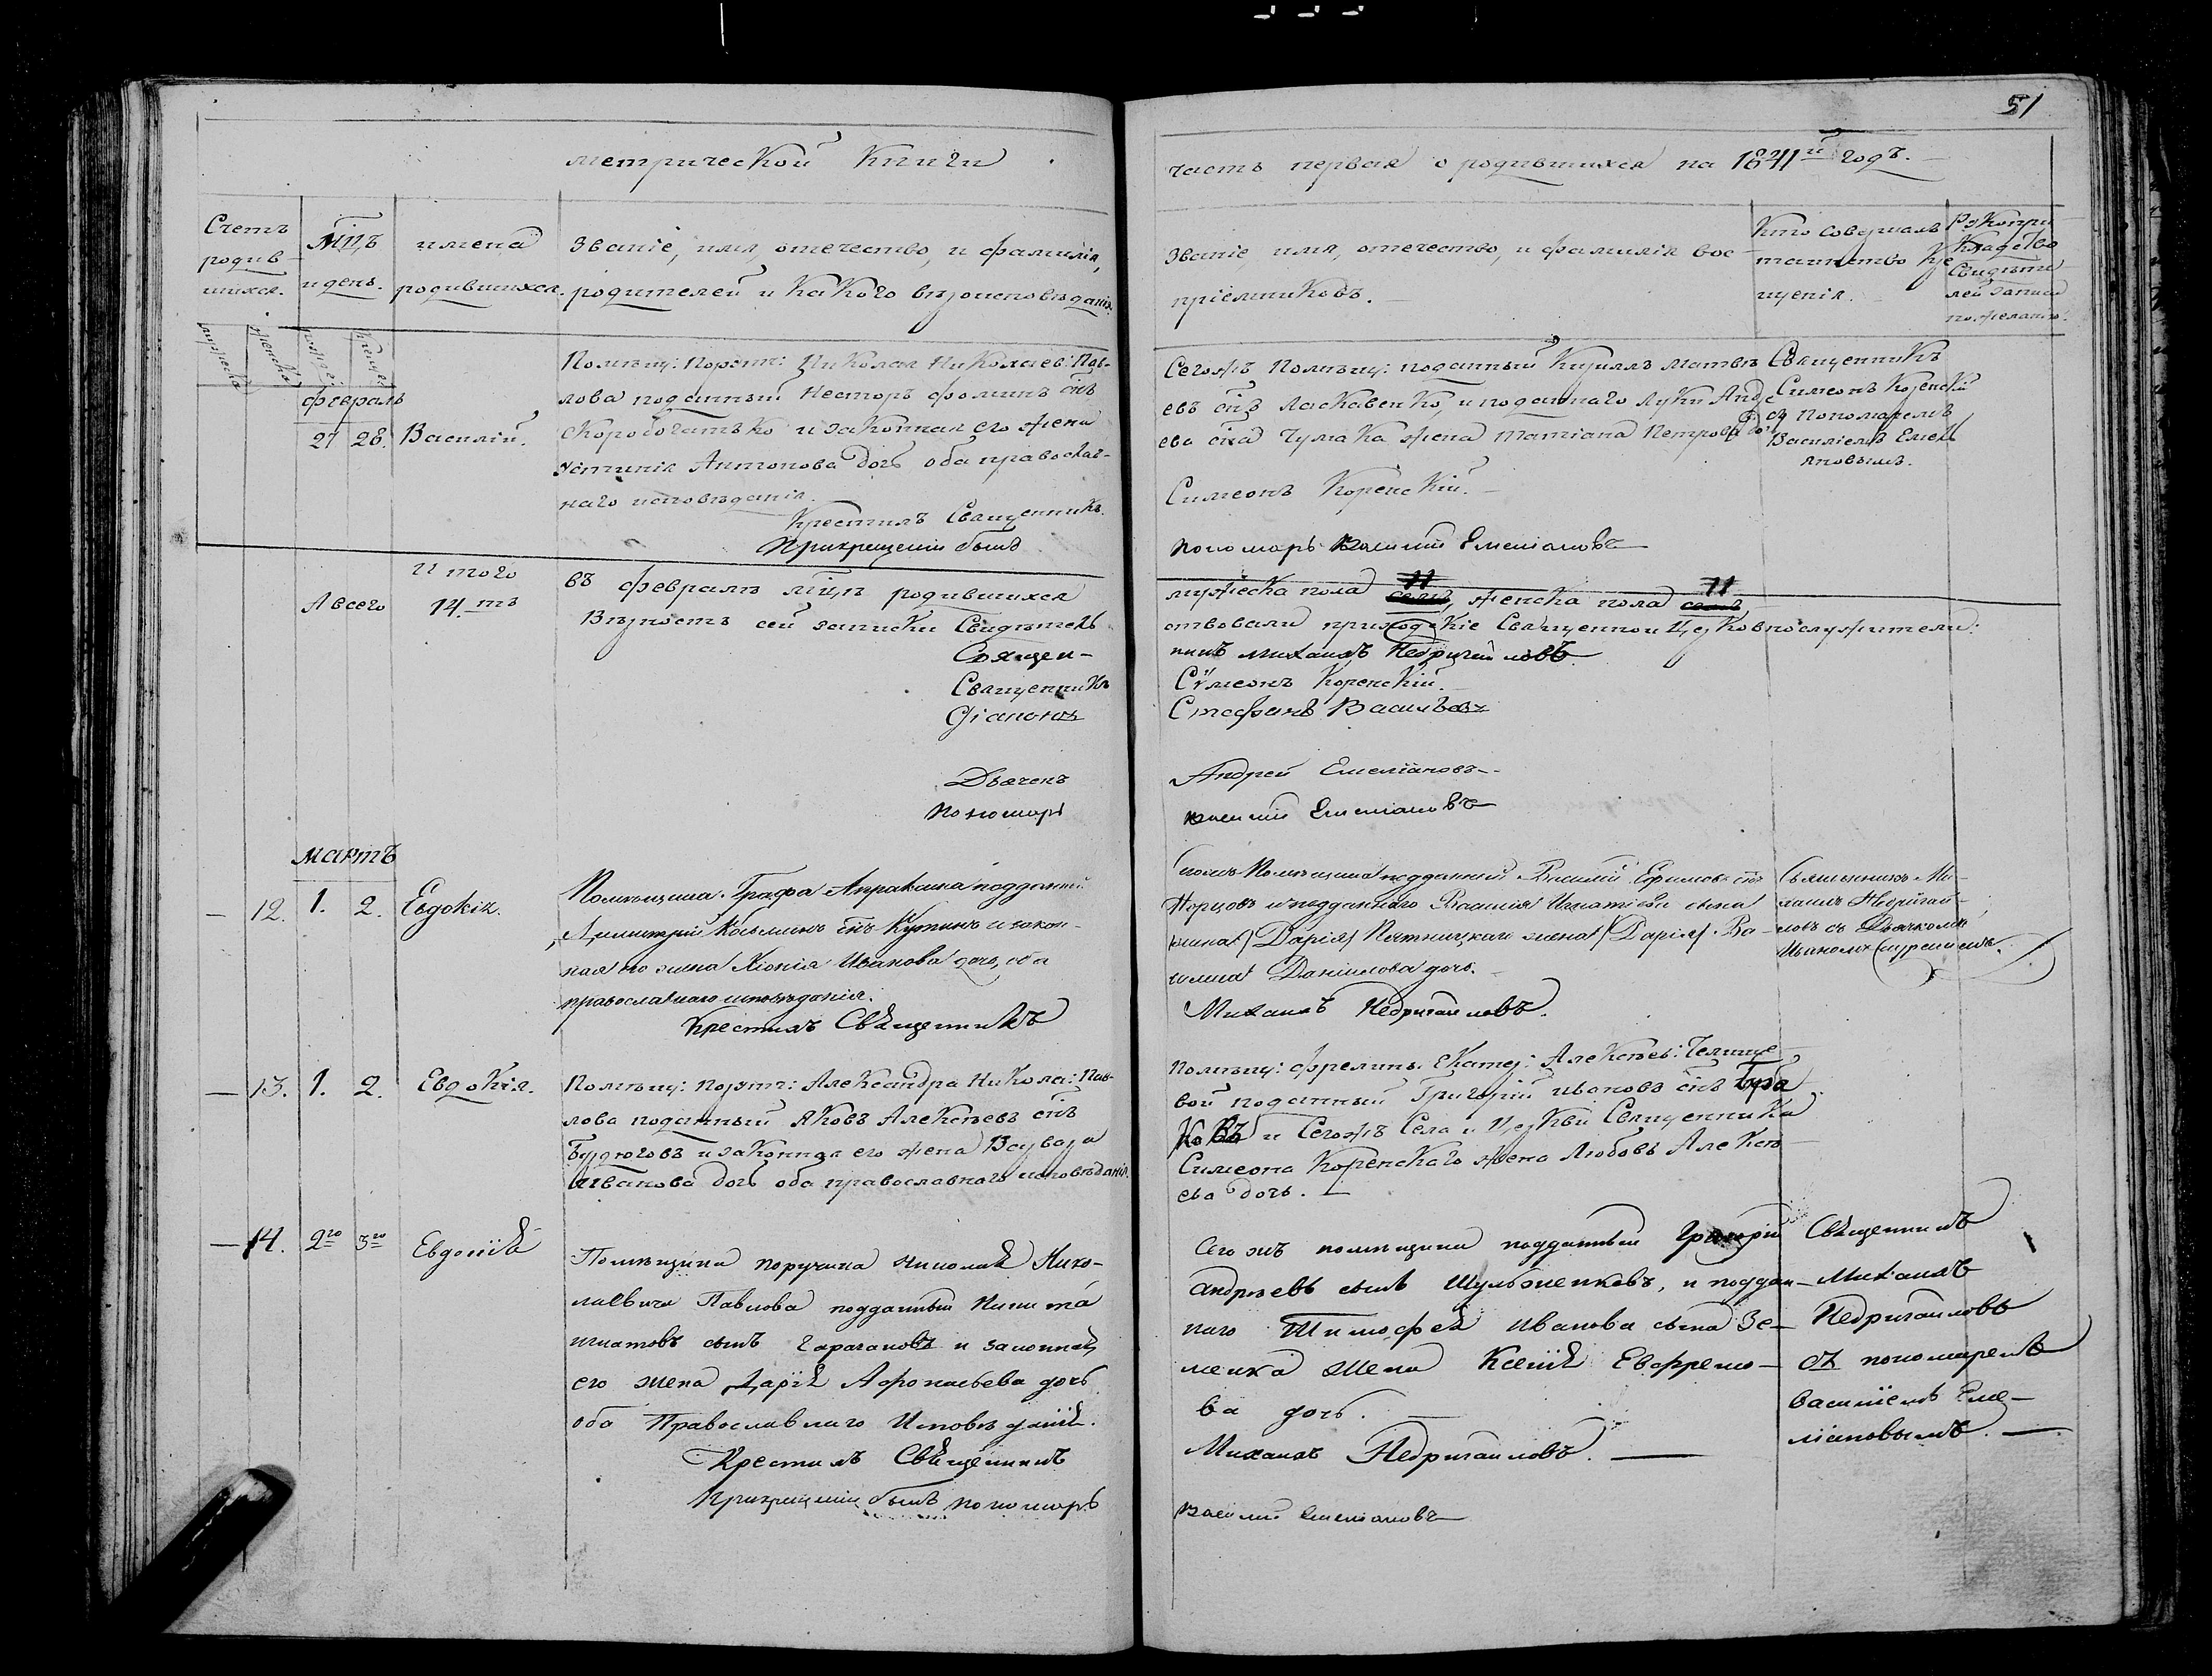 51
метрической книги
часть первая о родившихся на 1841й годъ.
Счетъ родив шихся.
Мцъ и день.
имена родившихся.
Званіе, имя, отечество, и фамилія,
родителей и какого вѣроисповѣданія.
Званіе имя, отечество, и фамилія вос-
пріемниковъ.
Кто совершалъ
таинство кре
щенія.
Рукопри
кладство
Свидѣте
лей записи
по желанію.
мужеска
женска
февраль
27 28. Василій.
Помѣщ: Поруч: Николая Николаев: Пав-
лова подданный Несторъ Фоминъ снъ
Скоробогатько и законная его жена
Устинія Антонова дочь оба православ-
наго исповѣданія.
Крестилъ Священникъ
При крещеніи былъ
Сегожъ Помѣщ: подданный Кириллъ Матвѣ
евъ снъ Ласкавенко, и подданнаго Луки Андре
ева сна Чумака жена Татіана Петрова дочь
Симеонъ Коренскій.
пономарь Василий Емельяновъ
Священникъ
Симеонъ Коренскій
съ пономаремъ
Василіемъ Емель
яновымъ.
Итого
А всего 14.ть
въ февралѣ мцѣ родившихся
мужеска пола 11, женска пола 11
Вѣрность сей записки Свидѣтель
ствовали приходскіе Священно и Церковнослужители:
Священ-
никъ Михаилъ Недригайловъ.
Священникъ
Сѷмеонъ Коренскій.
Діаконъ
Стефанъ Васильевъ
Дьячекъ
Андрей Емеліановъ
Пономарь
Василий Емельяновъ
Мартъ
— 12. 1. 2. Евдокія.
Помѣщика Графа Апраксина подданный
Димитрій Козьминъ снъ Кутинъ и закон-
ная его жена Хіонія Иванова дочь, оба
православнаго исповѣданія.
Крестилъ Священникъ
Тогожъ Помѣщика подданный Василій Ефимовъ снъ
Норцовъ и подданнаго Василія Игнатіева сына
Пятницкаго жена Дарія
Даніилова дочь.
Михаилъ Недригайловъ.
Священникъ Ми-
хаилъ Недригай-
ловъ съ Дьячкомъ
— 13. 1. 2. Евдокія.
Помѣщ: поруч: Александра Никола: Пав-
лова подданный Яковъ Алексѣевъ снъ
Бурдюговъ и законная его жена Варвара
Иванова дочь оба православнаго исповѣданія.
Помѣщ: фрелинъ. Екатер: Алексѣев: Челище
вой подданный Григорій Ивановъ снъ
ковъ и Сегожъ Села и Церкви Священника
Симеона Коренскаго жена Любовь Алексѣ
ева дочь.
— 14. 2го 3го Евдокія
Помѣщика поручика Николая Нико-
лаевича Павлова подданный Никита
Игнатовъ сынъ Гарагановъ и законная
его жена Дарія Афонасьева дочь
оба Православнаго Исповѣданія.
Крестилъ Священникъ
При крещеніи былъ пономарь
Сего жъ помѣщика подданный Григорій
Андрѣевъ сынъ Шульженковъ, и поддан-
наго Тимофея Иванова сына Зе-
ленка жена Ксенія Евфремо-
ва дочь.
Михаилъ Недригайловъ.
Василий Емельяновъ
Священникъ
Михаилъ
Недригайловъ
съ пономаремъ
Василіемъ Еме-
ліановымъ.